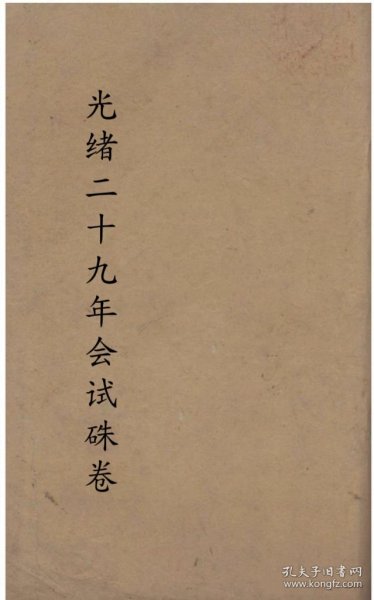 光绪二十九年会试硃卷
孔夫子旧书网
www.kongfz.com